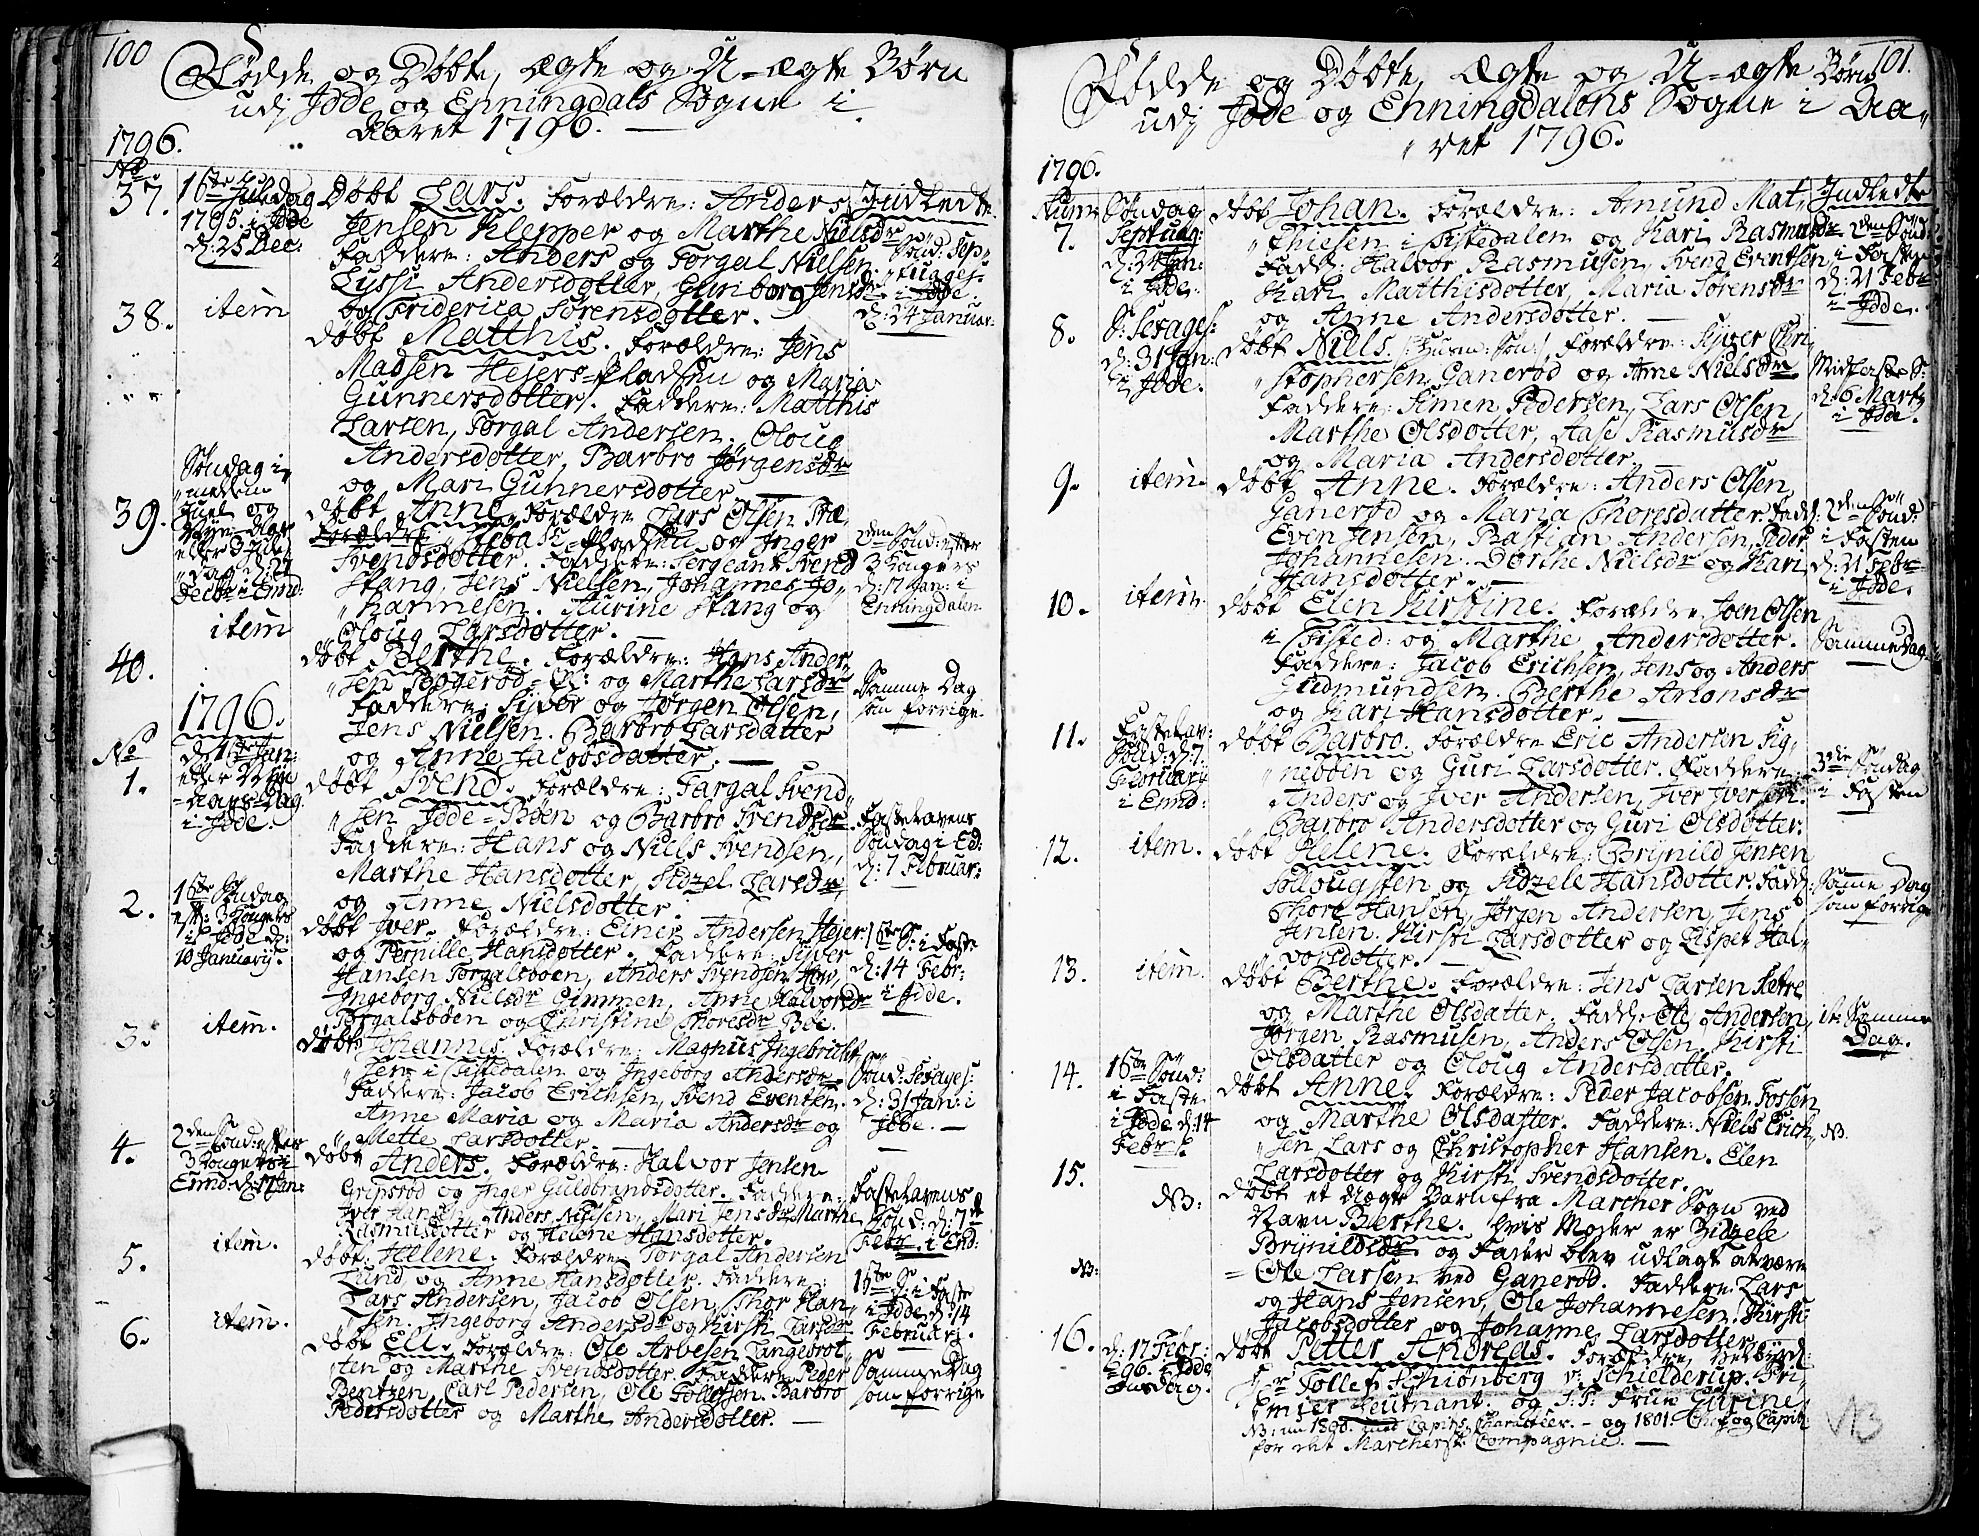 100
Fødde og Døbte, Ægte og U-ægte Børn
udj Idde og Enningdals Sogne i
Aaret 1796.
1796.
No
37.
16te Juledag
1795 i Idde
d: 25 Dec:
Døbt Lars. Forældre: Anders
Jensen Klepper og Marthe Nielsdr
Faddere: Anders og Torgal Nielsen
Lyssi Andersdotter, Guriborg Jensdr
og Friderica Sørensdotter.
Indledte
Sønd: Sep-
tuages-
i Idde
d: 24 Januar:
38.
item
døbt Matthis. Forældre: Jens
Madsen Hejers-Pladsen og Maria
Gunnersdotter. Faddere: Matthis
Larsen, Torgal Andersen. Oloug
Andersdotter, Barbro Jørgensdr
og Mari Gunnersdotter
39.
Søndag i-
mellem
Juel og
d: 27
Decbr i Ennd:
døbt Anne. Forældre Lars Olsen
Pladsen og Inger
Svendsdotter. Faddere: Sergeant Svend
Stang, Jens Nielsen, Johannes Jo-
hannesen. Kurine Stang og
Oloug Larsdotter.
2den Sønd: efter
3 Konger
d: 17 Jan: i
Enningdalen
40.
item
døbt Berthe. Forældre: Hans Ander-
sen og Marthe Larsdr
Faddere: Siver og Jørgen Olsen,
Jens Nielsen. Barbro Larsdatter
og Anne Jacobsdatter.
Samme Dag
som forrige.
1796.
No
1.
d: 1te Jan:
eller Nye
aars-Dag
i Idde.
døbt Svend. Forældre: Targal Svend-
sen Idde-Bøen og Barbro Svendsdr
Faddere: Hans og Niels Svendsen,
Marthe Hansdotter, Sidzel Larsdr
og Anne Nielsdotter.
Fastelavens
Søndag i Ed:
d: 7 Februar:
2.
1ste Søndag
eft: 3 Konger
i Idde d:
10 Januarij.
døbt Iver. Forældre: Einer Andersen Hejer
og Pernille Hansdotter. Faddere: Siver
Hansen Torgalsbøen, Anders Svendsen
Ingeborg Nielsdr Gimmen, Anne Halvorsdr
Torgalsbøen og Christine Thoresdr Bøe.
1ste S: i Faste
d: 14 Febr:
i Idde.
3.
item.
døbt Johannes. Forældre: Magnus Ingebricht-
sen i Tistedalen og Ingeborg Andersdr
Faddere: Jacob Erichsen, Svend Eventsen.
Anne Maria og Maria Andersdr og
Mette Larsdotter.
Sønd: Sexages:
d: 31 Jan: i
Idde.
4.
2den Sønd: efter
3 Konger i
Ennd: d: 17 Jan:
døbt Anders. Forældre: Halvor Jensen
Gripsrød og Inger Guldbrandsdotter. Faddere:
Iver Hansen, Anders Nilsen, Mari Jensdr Marthe
Rasmusdotter og Helene Hansdotter.
Fastelavens
Sønd: d: 7de
Febr. i End:
5.
item.
døbt Helene. Forældre: Torgal Andersen
Lund og Anne Hansdotter. Faddere:
Lars Andersen, Jacob Olsen, Thor Han-
sen. Ingeborg Andersdr og Kirsti Larsdr
1ste S: i Faste
i Idde d: 14
Februarj.
6.
item.
døbt Ell. Forældre: Ole Arvesen Langebrot-
ten og Marthe Svendsdotter. Faddere Peder
Bentzen, Carl Pedersen, Ole Tollefsen. Barbro
Pedersdotter og Marthe Andersdotter.
Samme Dag
som forrige
101.
Fødde og Døbte, Ægte og U-ægte Børn
udj Idde og Enningdalens Sogne i Aa-
ret 1796.
1796.
Num:
7.
Søndag
Septuag:
d: 24 Jan:
i Idde.
døbt Johan. Forældre: Amund Mat-
thiesen i Tistedalen og Kari Rasmusdr
Fadd: Halvor Rasmusen, Svend Eventsen
Kari Matthisdotter, Maria Sørensdr
og Anne Andersdotter.
Indledte
2den Sønd:
i Fasten
d: 21 Febr
i Idde.
8.
S: Sexages:
d: 31 Jan:
i Idde.
døbt Niels. Forældre: Syver Chri-
stophersen Ganerød og Anne Nielsdr
Faddere: Simen Pedersen, Lars Olsen,
Marthe Olsdotter, Aase Rasmusdr
og Maria Andersdotter
Midfaste S:
d: 6 Marty
i Idde.
9.
item.
døbt Anne. Forældre: Anders Olsen
Ganerød og Maria Thoresdatter. Fadd:
Even Jensen, Bastian Andersen, Peder
Johannesen. Dorthe Nielsdr og Kari
Hansdotter.
2den Sønd:
i Fasten
d: 21 Febr
i Idde.
10.
item.
døbt Elen Kirstine. Forældre Joen Olsen
i Tisted: og Marthe Andersdotter.
Faddere: Jacob Erichsen, Jens og Anders
Gudmundsen. Berthe Amonsdr
og Kari Hansdotter.
Samme Dag
11.
Fastelav:
Sønd: d: 7
Februarij
i Ennd:
døbt Barbro. Forældre Eric Andersen Sig-
nebøen og Guri Larsdotter. Faddere:
Anders og Iver Andersen, Iver Iversen.
Barbro Andersdotter og Guri Olsdotter.
3die Søndag
i Fasten
12.
item.
døbt Helene. Forældre: Brynild Jensen
og Sidzele Hansdotter. Fadd:
Thore Hansen, Jørgen Andersen, Jens
Jensen. Kirsti Larsdotter og Lispet Hal-
vorsdotter.
Samme Dag
som forrige
13.
item.
døbt Berthe. Forældre: Jens Larsen
og Marthe Olsdatter. Fadd: Ole Andersen,
Jørgen Rasmusen, Anders Olsen. Kirsti
Olsdatter og Oloug Andersdatter.
it: Samme
Dag.
14.
1ste Sønd:
i Faste
i Idde d: 14
Febr:
døbt Anne. Forældre: Peder Jacobsen Fossen
og Marthe Olsdatter. Faddere: Niels Erich-
sen, Lars og Christopher Hansen. Elen
Larsdotter og Kirsti Svendsdotter.
NB.
15.
NB:
døbt et uægte Barn fra Marcher Sogn ved
Navn Berthe. hvis Moder er Zidzele
Brynildsdr. og Fader blev udlagt at være
NB:
Ole Larsen ved Ganerød. Faddere: Lars
og Hans Jensen, Ole Johannesen. Kirsti
Jacobsdotter og Johanne Larsdotter
16.
d: 17 Febr:
96. i Idde
onsdag.
døbt Petter Andreas. Forældre,
Hr Tollef Schiønberg v: Schielderup. Pri-
mier Leutnant. og S: T: Frue Eurine
NB: nu 1800. med Capits Characteer. - og 1801. Chef og Capit:
for det Marcherske Compagnie.
NB